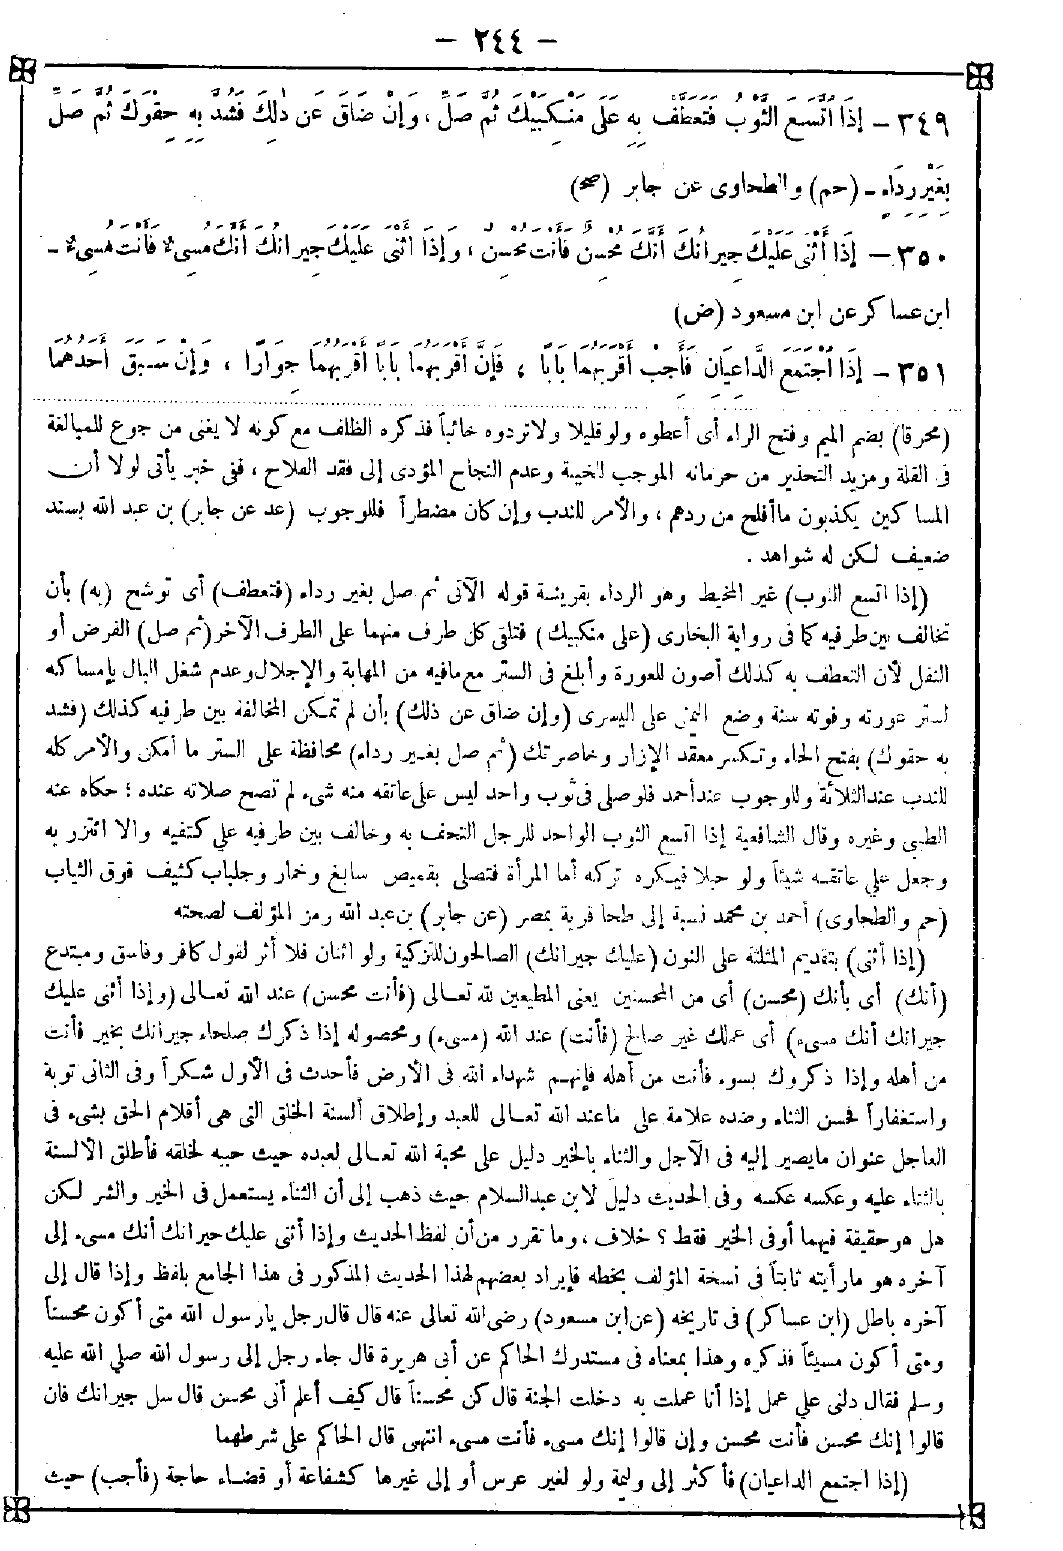 – ٢٤٤ –
٣٤٩ – إِذَا اتَّسَعَ الثَّوْبُ فَتَعَطَّفْ بِهِ عَلَى مَنْكِبَيْكَ ثُمَّ صَلِّ ، وَإِنْ ضَاقَ عَنْ ذٰلِكَ فَشُدَّ بِهِ حِقْوَكَ ثُمَّ صَلِّ
بِغَيْرِ رِدَاءٍ – (حم) والطحاوى عن جابر (صح)
٣٥٠ – إِذَا أَثْنَى عَلَيْكَ جِيرَانُكَ أَنَّكَ مُحْسِنٌ فَأَنْتَ مُحْسِنٌ ، وَإِذَا أَثْنَى عَلَيْكَ جِيرَانُكَ أَنَّكَ مُسِىءٌ فَأَنْتَ مُسِىءٌ –
ابن عساكر عن ابن مسعود (ض)
٣٥١ – إِذَا اجْتَمَعَ الدَّاعِيَانِ فَأَجِبْ أَقْرَبَهُمَا بَابًا ، فَإِنَّ أَقْرَبَهُمَا بَابًا أَقْرَبُهُمَا جِوَارًا ، وَإِنْ سَبَقَ أَحَدُهُمَا
(محرقا) بضم الميم وفتح الراء أى أعطوه ولو قليلا ولا تردوه خائباً فذكره الظلف مع كونه لا يغنى من جوع للمبالغة
فى القلة ومزيد التحذير من حرمانه الموجب للخيبة وعدم النجاح المؤدى إلى فقد الفلاح ، ففى خبر يأتى لولا أن
المساكين يكذبون ما أفلح من ردهم ، والأمر للندب وإن كان مضطراً فللوجوب (عد عن جابر) بن عبد الله بسند
ضعيف لكن له شواهد .
(إذا اتسع الثوب) غير المخيط وهو الرداء بقرينة قوله الآتى ثم صل بغير رداء (فتعطف) أى توشح (به) بأن
تخالف بين طرفيه كما فى رواية البخارى (على منكبيك) فتلقى كل طرف منهما على الطرف الآخر (ثم صل) الفرض أو
النفل لأن التعطف به كذلك أصون للعورة وأبلغ فى الستر مع مافيه من المهابة والإجلال وعدم شغل البال بإمساكه
لستر عورته وفوته سنة وضع اليمنى على اليسرى (وإن ضاق عن ذلك) بأن لم تمكن المخالفة بين طرفيه كذلك (فشد
به حقوك) بفتح الحاء وتكسر معقد الإزار وخاصرتك (ثم صل بغير رداء) محافظة على الستر ما أمكن والأمر كله
للندب عند الثلاثة وللوجوب عند أحمد فلو صلى فى ثوب واحد ليس على عاتقه منه شىء لم تصح صلاته عنده ؛ حكاه عنه
الطيبى وغيره وقال الشافعية إذا اتسع الثوب الواحد للرجل التحف به وخالف بين طرفيه على كتفيه والا ائتزر به
وجعل على عاتقه شيئاً ولو حبلا فيكره تركه أما المرأة فتصلى بقميص سابغ وخمار وجلباب كثيف فوق الثياب
(حم والطحاوى) أحمد بن محمد نسبة إلى طحا قرية بمصر (عن جابر) بن عبد الله رمز المؤلف لصحته
(إذا أثنى) بتقديم المثلثة على النون (عليك جيرانك) الصالحون للتزكية ولو اثنان فلا أثر لقول كافر وفاسق ومبتدع
(أنك) أى بأنك (محسن) أى من المحسنين يعنى المطيعين لله تعالى (فأنت محسن) عند الله تعالى (وإذا أثنى عليك
جيرانك أنك مسىء) أى عملك غير صالح (فأنت) عند الله (مسىء) ومحصوله إذا ذكرك صلحاء جيرانك بخير فأنت
من أهله وإذا ذكروك بسوء فأنت من أهله فإنهم شهداء الله فى الأرض فأحدث فى الأول شكراً وفى الثانى توبة
واستغفاراً فحسن الثناء وضده علامة على ماعند الله تعالى للعبد وإطلاق ألسنة الخلق التى هى أقلام الحق بشىء فى
العاجل عنوان مايصير إليه فى الآجل والثناء بالخير دليل على محبة الله تعالى لعبده حيث حببه لخلقه فأطلق الألسنة
بالثناء عليه وعكسه عكسه وفى الحديث دليل لابن عبدالسلام حيث ذهب إلى أن الثناء يستعمل فى الخير والشر لكن
هل هو حقيقة فيهما أو فى الخير فقط ؟ خلاف ، وما تقرر من أن لفظ الحديث وإذا أثنى عليك جيرانك أنك مسىء إلى
آخره هو ما رأيته ثابتاً فى نسخة المؤلف بخطه فإيراد بعضهم لهذا الحديث المذكور فى هذا الجامع بلفظ وإذا قال إلى
آخره باطل (ابن عساكر) فى تاريخه (عن ابن مسعود) رضى الله تعالى عنه قال قال رجل يارسول الله متى أكون محسناً
ومتى أكون مسيئاً فذكره وهذا بمعناه فى مستدرك الحاكم عن أبى هريرة قال جاء رجل إلى رسول الله صلى الله عليه
وسلم فقال دلنى على عمل إذا أنا عملت به دخلت الجنة قال كن محسناً قال كيف أعلم أنى محسن قال سل جيرانك فان
قالوا إنك محسن فأنت محسن وإن قالوا إنك مسىء فأنت مسىء انتهى قال الحاكم على شرطهما
(إذا اجتمع الداعيان) فأكثر إلى وليمة ولو لغير عرس أو إلى غيرها كشفاعة أو قضاء حاجة (فأجب) حيث